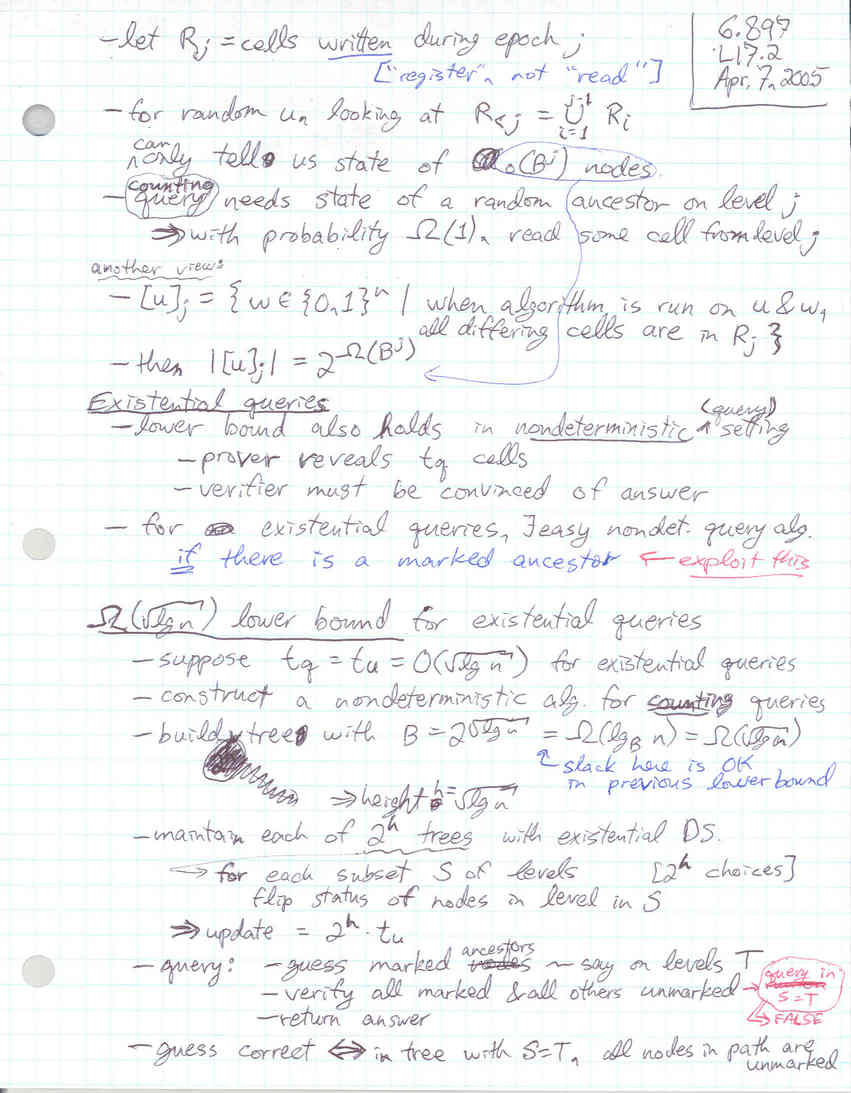 6.897
L17.2
Apr. 7, 2005
– let Rj = cells written during epoch j
["register", not "read"]
– for random u, looking at R<j = ⋃_{i=1}^{j-1} Ri
can only tell us state of o(B^j) nodes
– counting query needs state of a random ancestor on level j
⇒ with probability Ω(1), read some cell from level j
another view:
– [u]j = {w ∈ {0,1}^n | when algorithm is run on u & w,
all differing cells are in Rj}
– then |[u]j| = 2^Ω(B^j)
Existential queries
– lower bound also holds in nondeterministic (query) setting
– prover reveals tq cells
– verifier must be convinced of answer
– for existential queries, ∃ easy nondet. query alg.
if there is a marked ancestor ← exploit this
Ω(√lg n) lower bound for existential queries
– suppose tq = tu = O(√lg n) for existential queries
– construct a nondeterministic alg. for counting queries
– build tree with B = 2^√lg n = Ω(lgB n) = Ω(√lg n)
↖ slack here is OK
in previous lower bound
⇒ height h = √lg n
– maintain each of 2^h trees with existential DS.
→ for each subset S of levels [2^h choices]
flip status of nodes in level in S
⇒ update = 2^h · tu
– query: – guess marked ancestors ~ say on levels T
– verify all marked & all others unmarked → query in
S=T
↳ FALSE
– return answer
– guess correct ⇔ in tree with S=T, all nodes in path are
unmarked